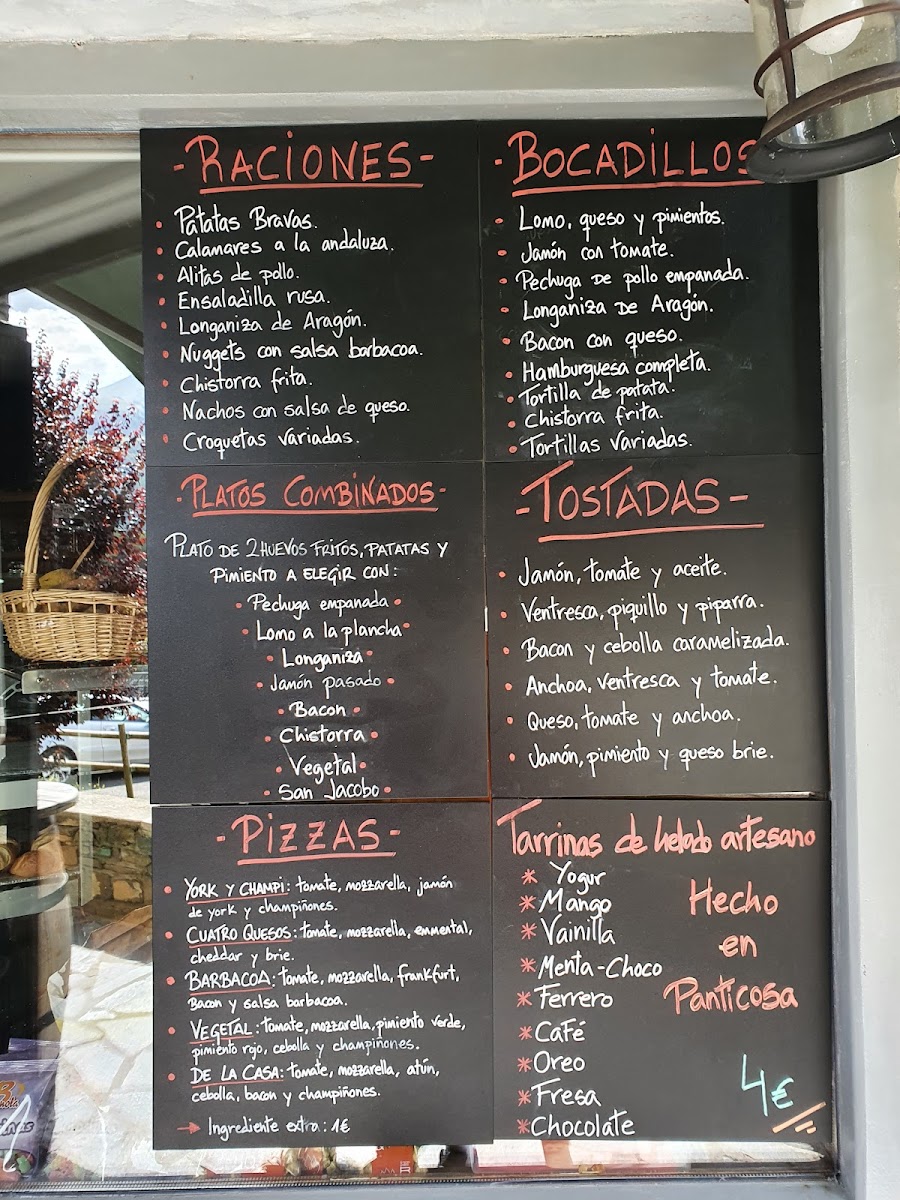 -RACIONES-
• Patatas Bravas.
• Calamares a la andaluza.
• Alitas de pollo.
• Ensaladilla rusa.
• Longaniza de Aragón.
• Nuggets con salsa barbacoa.
• Chistorra frita.
• Nachos con salsa de queso.
• Croquetas variadas.
-BOCADILLOS
• Lomo, queso y pimientos.
• Jamón con tomate.
• Pechuga DE pollo empanada.
• Longaniza DE Aragón.
• Bacon con queso.
• Hamburguesa completa.
• Tortilla de patata.
• Chistorra frita.
• Tortillas variadas.
-PLATOS COMBINADOS-
PLATO DE 2 HUEVOS FRITOS, PATATAS Y
PIMIENTO A ELEGIR CON:
• Pechuga empanada •
• Lomo a la plancha •
• Longaniza •
• Jamón pasado •
• Bacon •
• Chistorra •
• Vegetal •
• San Jacobo •
-TOSTADAS-
• Jamón, tomate y aceite.
• Ventresca, piquillo y piparra.
• Bacon y cebolla caramelizada.
• Anchoa, ventresca y tomate.
• Queso, tomate y anchoa.
• Jamón, pimiento y queso brie.
-PIZZAS-
• YORK Y CHAMPI: tomate, mozzarella, jamón
de york y champiñones.
• CUATRO QUESOS: tomate, mozzarella, emmental,
cheddar y brie.
• BARBACOA: tomate, mozzarella, frankfurt,
Bacon y salsa barbacoa.
• VEGETAL: tomate, mozzarella, pimiento verde,
pimiento rojo, cebolla y champiñones.
• DE LA CASA: tomate, mozzarella, atún,
cebolla, bacon y champiñones.
→ Ingrediente extra: 1€
Tarrinas de helado artesano
* Yogur
* Mango
* Vainilla
* Menta-Choco
* Ferrero
* Café
* Oreo
* Fresa
* Chocolate
Hecho
en
Panticosa
4€